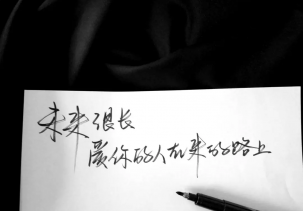 未来很长
赏你的人在来的路上